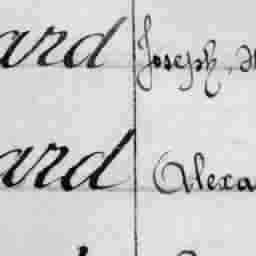 ard Joseph
ard Alexa